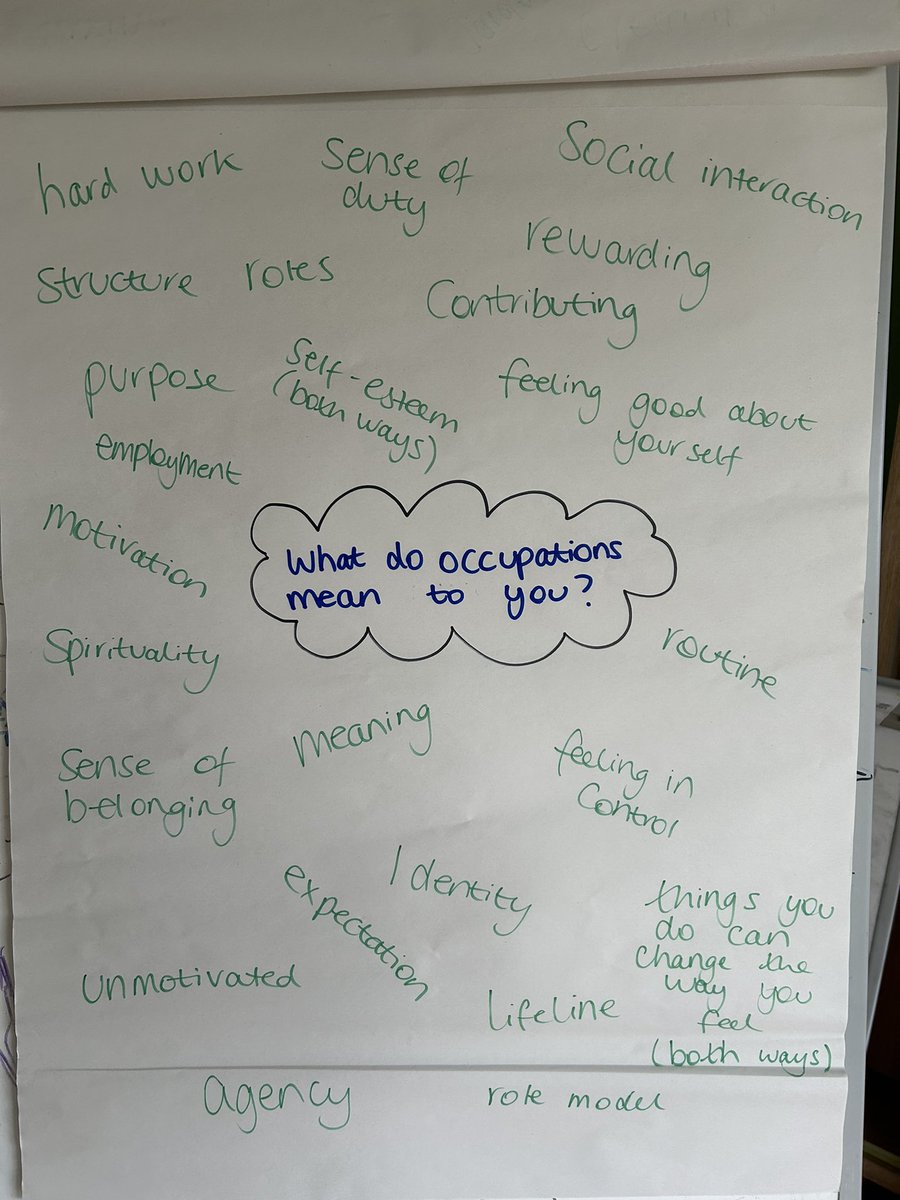 hard work
Sense of
duty
Social interaction
Structure
roles
rewarding
Contributing
purpose
Self-esteem
(both ways)
feeling good about
yourself
employment
motivation
What do occupations
mean to you?
Spirituality
routine
meaning
Sense of
belonging
feeling in
Control
Identity
expectation
things you
do can
change the
way you
feel
(both ways)
unmotivated
lifeline
agency
role model